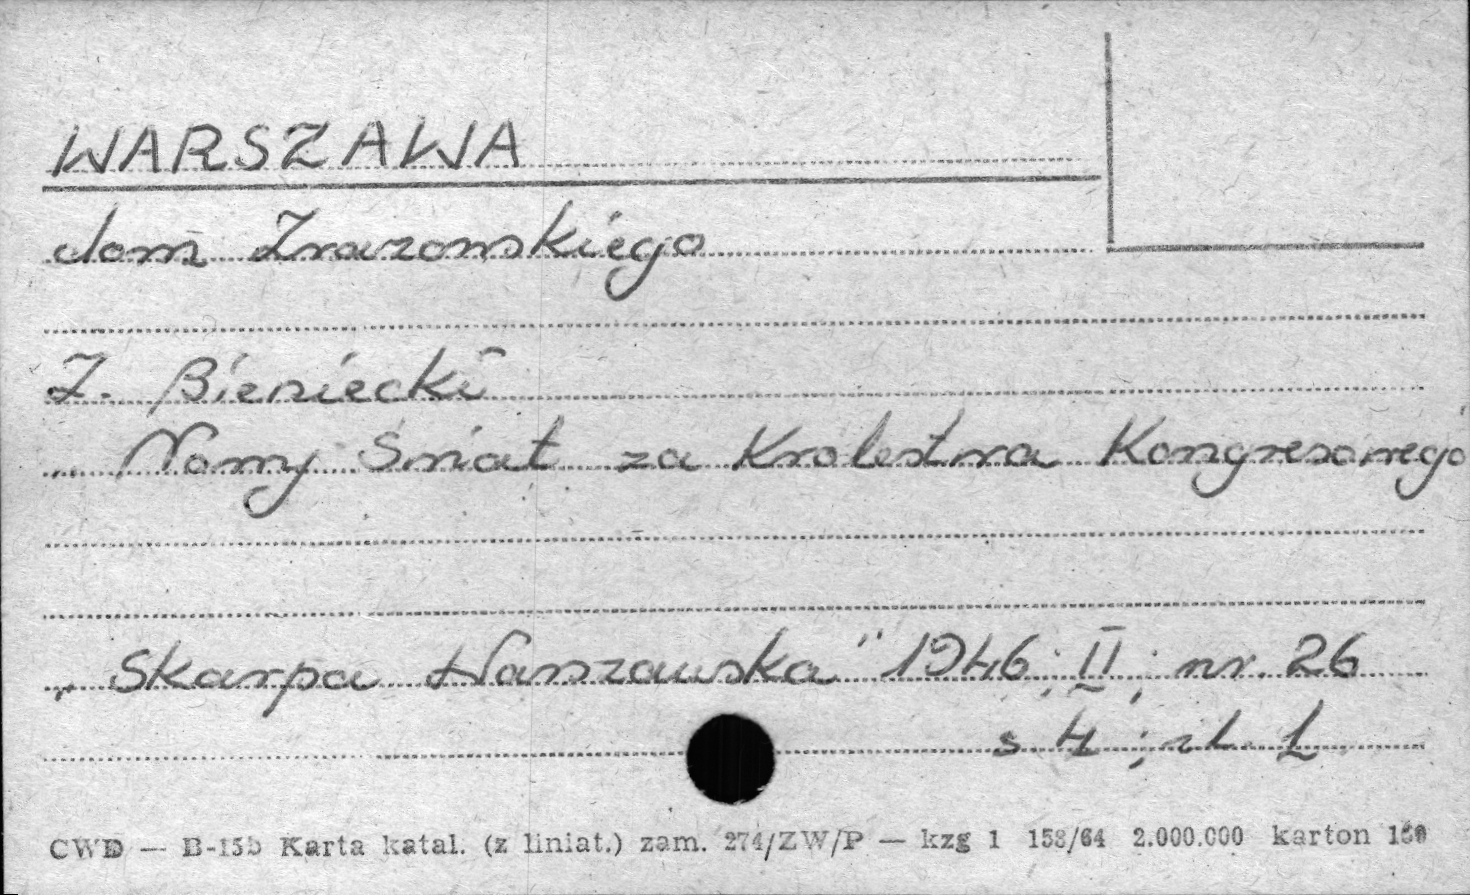 WARSZAWA
dom Zrazowskiego
Z. Bieniecki
„Nowy Świat za Krolestwa Kongresowego
„Skarpa Warszawska" 1946; II; nr. 26
s 4; il. 1
CWD — B-15b Karta katal. (z liniat.) zam. 274/ZW/P — kzg 1 158/64 2.000.000 karton